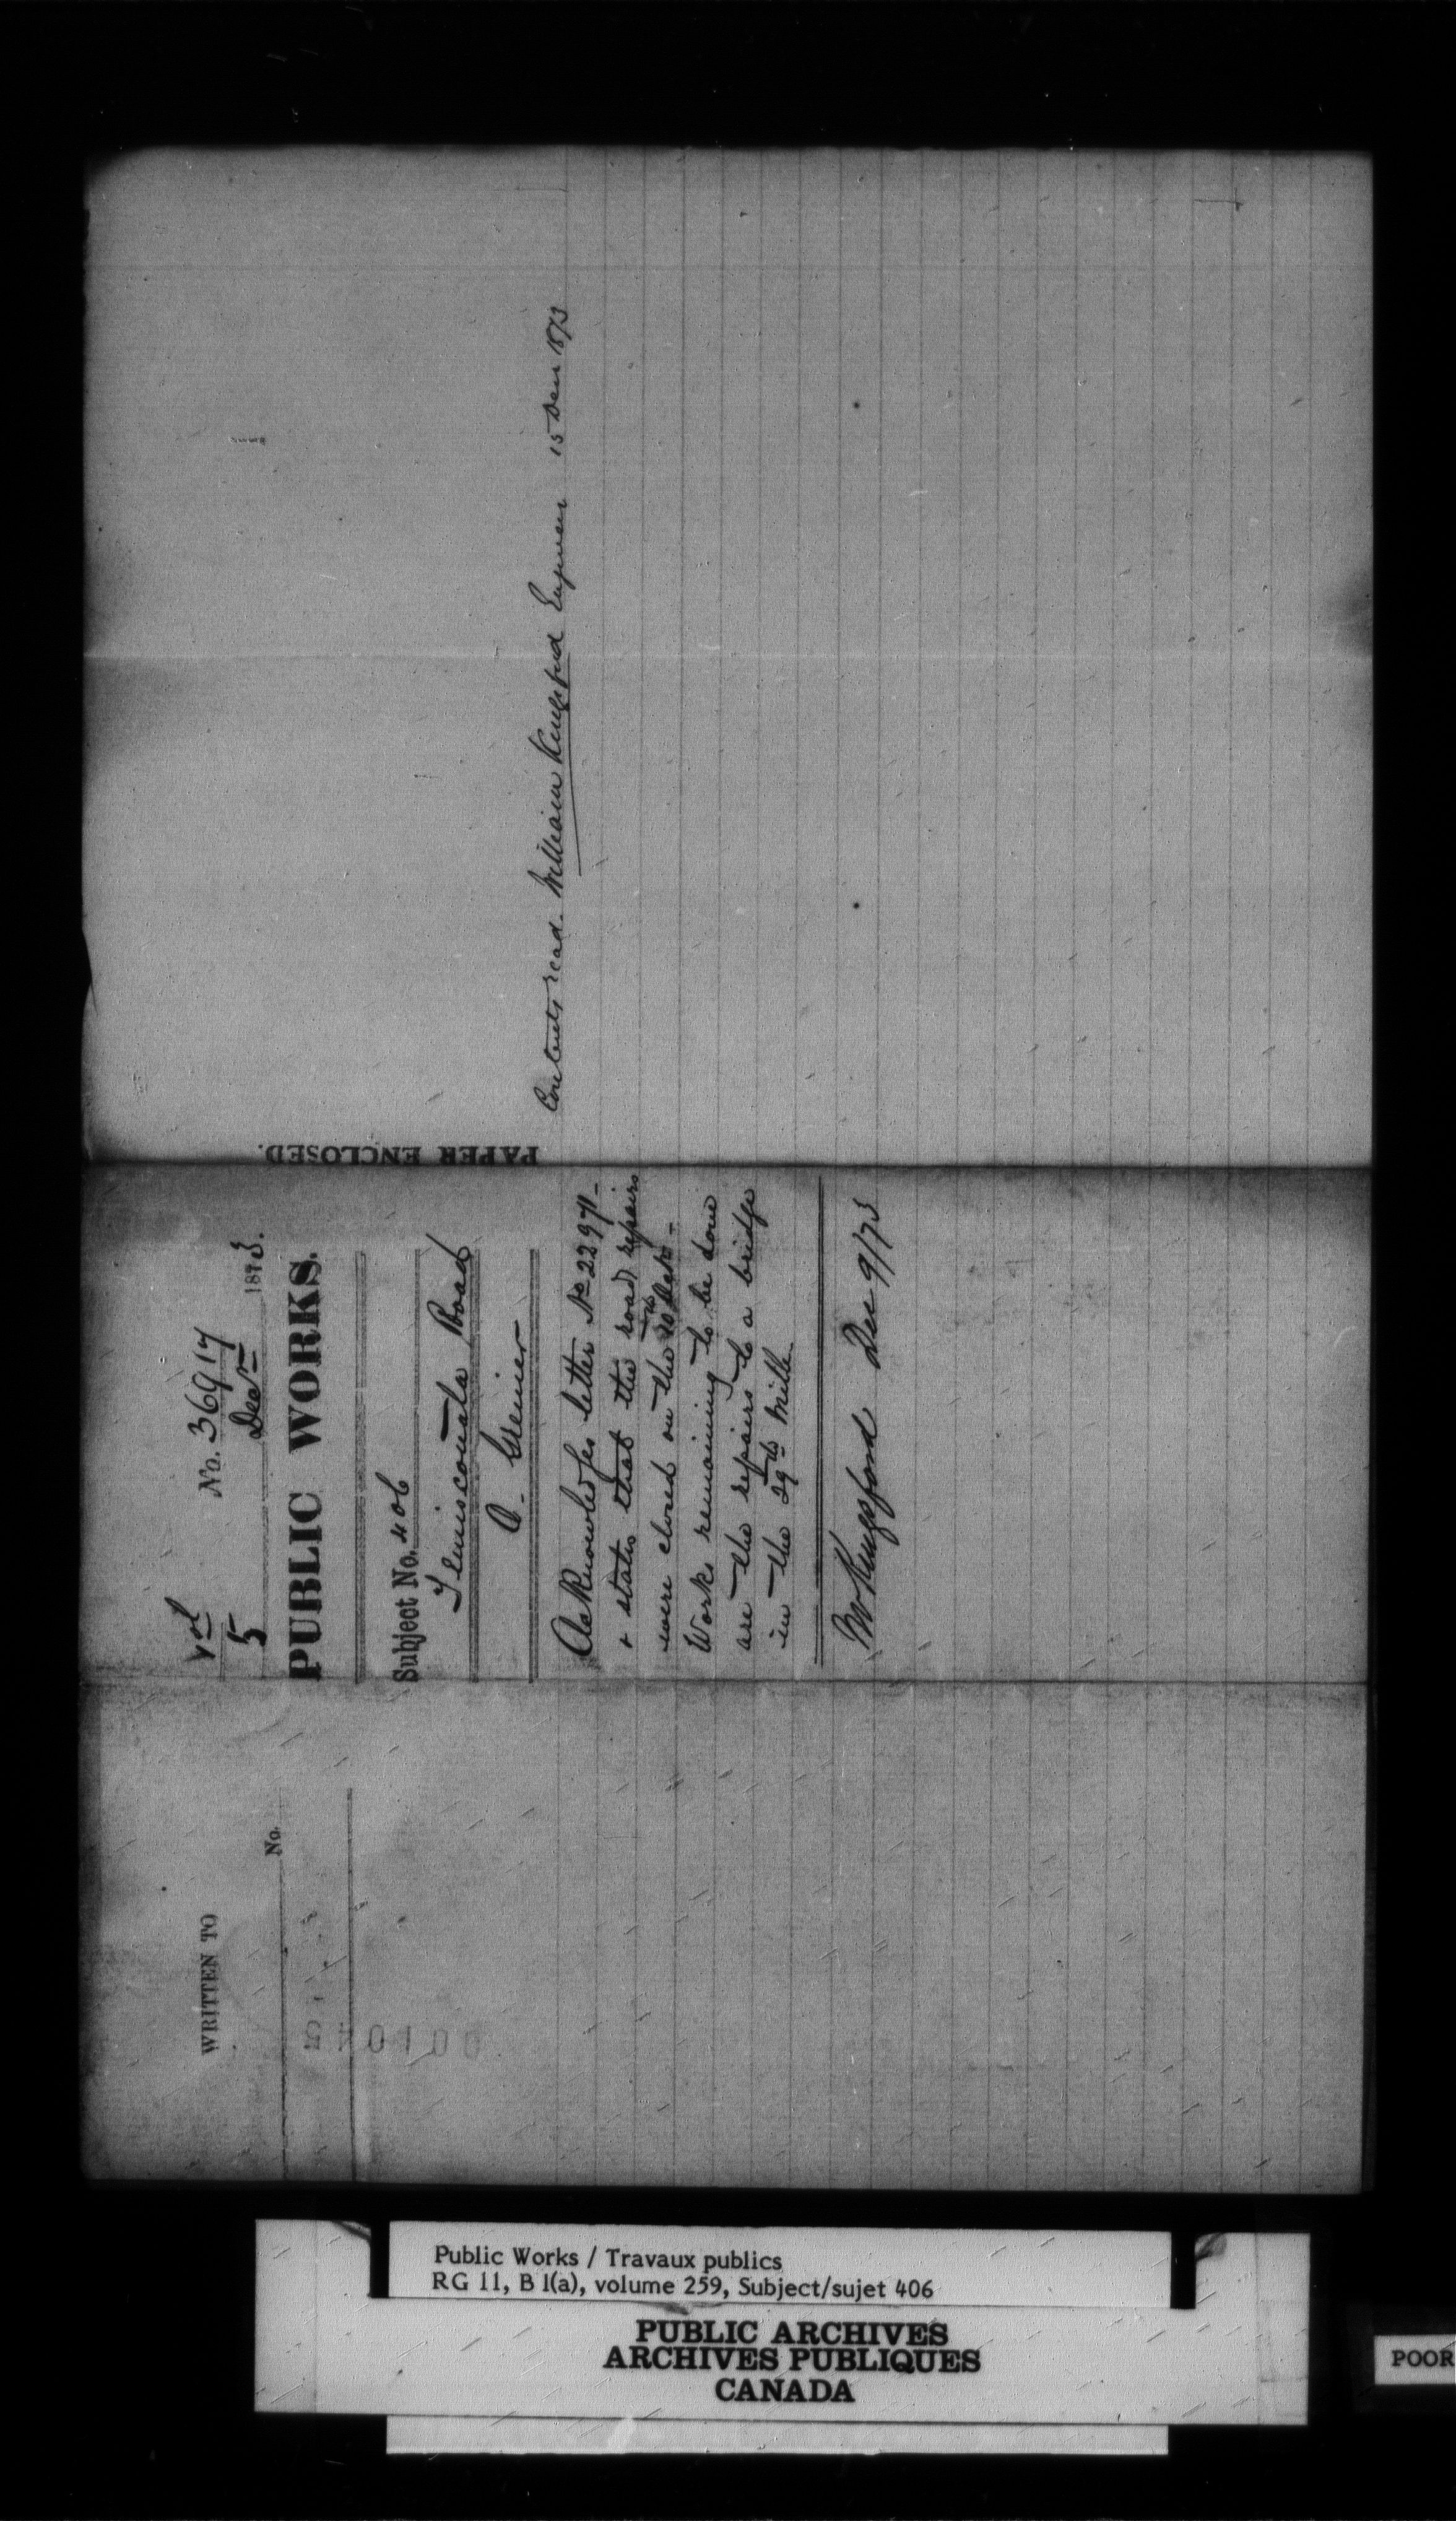 No. 36917
5 Decr 1873.
PUBLIC WORKS.
Subject No. 406
Temiscouata Road
A. Grenier
Acknowledges letter No 22971-
& states that the road repairs
were closed on the
Works remaining to be done
are the repairs to a bridge
in the 29th Mille.
W Kingsford Dec 9/73
PAPER ENCLOSED.
Contents read. William Kingsford Engineer 15 Decr 1873
WRITTEN TO
No.
Public Works / Travaux publics
RG 11, B 1(a), volume 259, Subject/sujet 406
PUBLIC ARCHIVES
ARCHIVES PUBLIQUES
CANADA
POOR